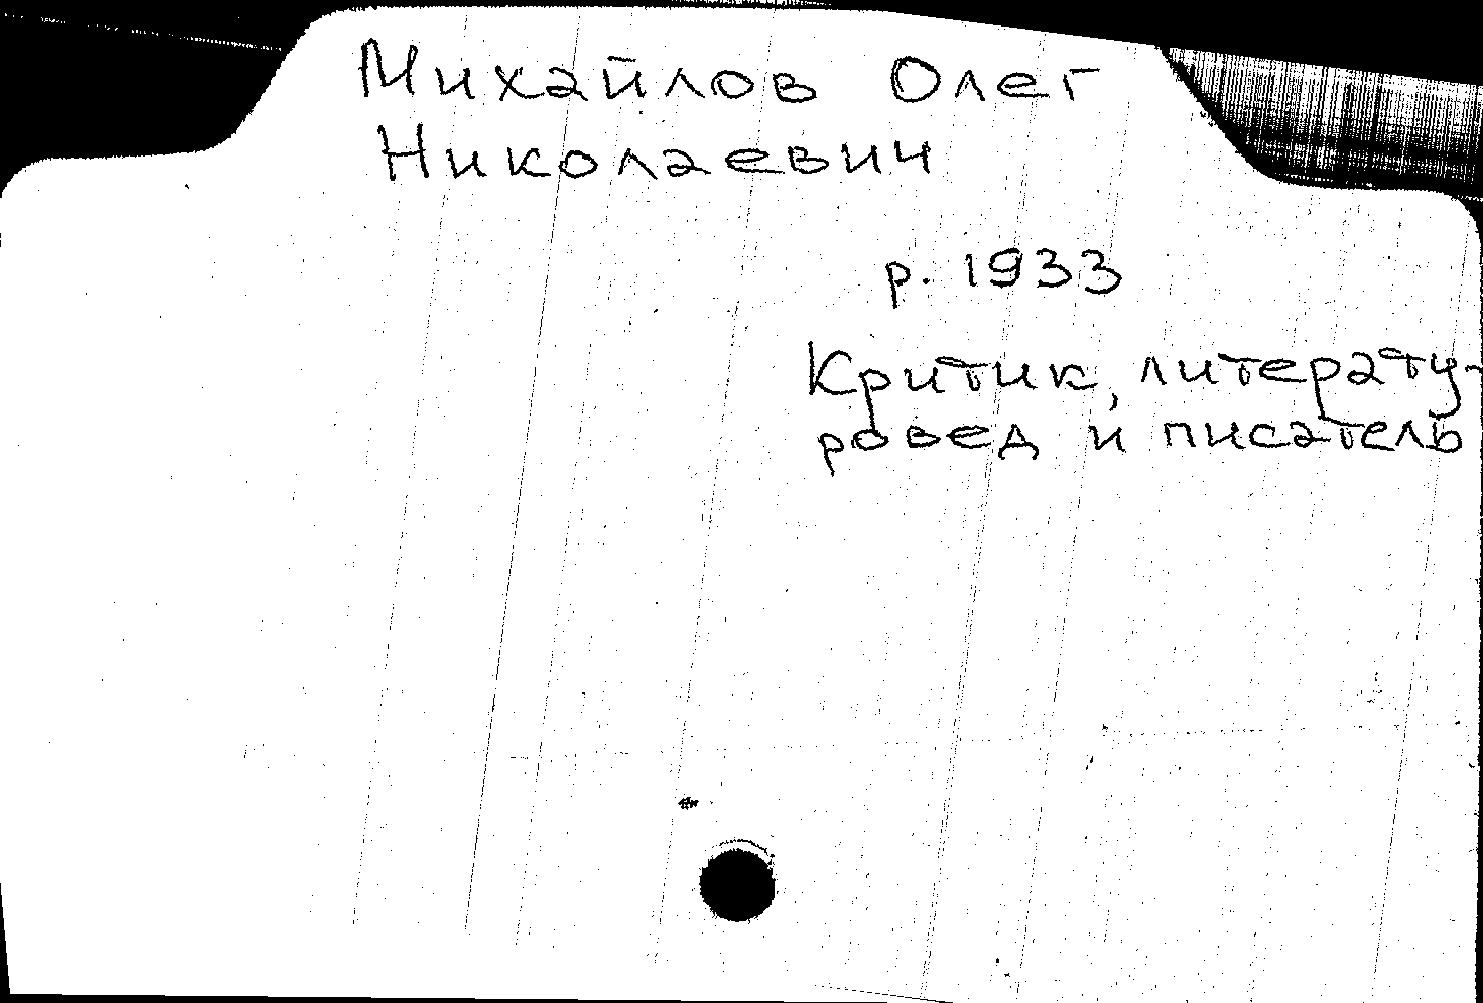 Михайлов Олег
Николаевич
р. 1933
Критик, литерату-
ровед и писатель